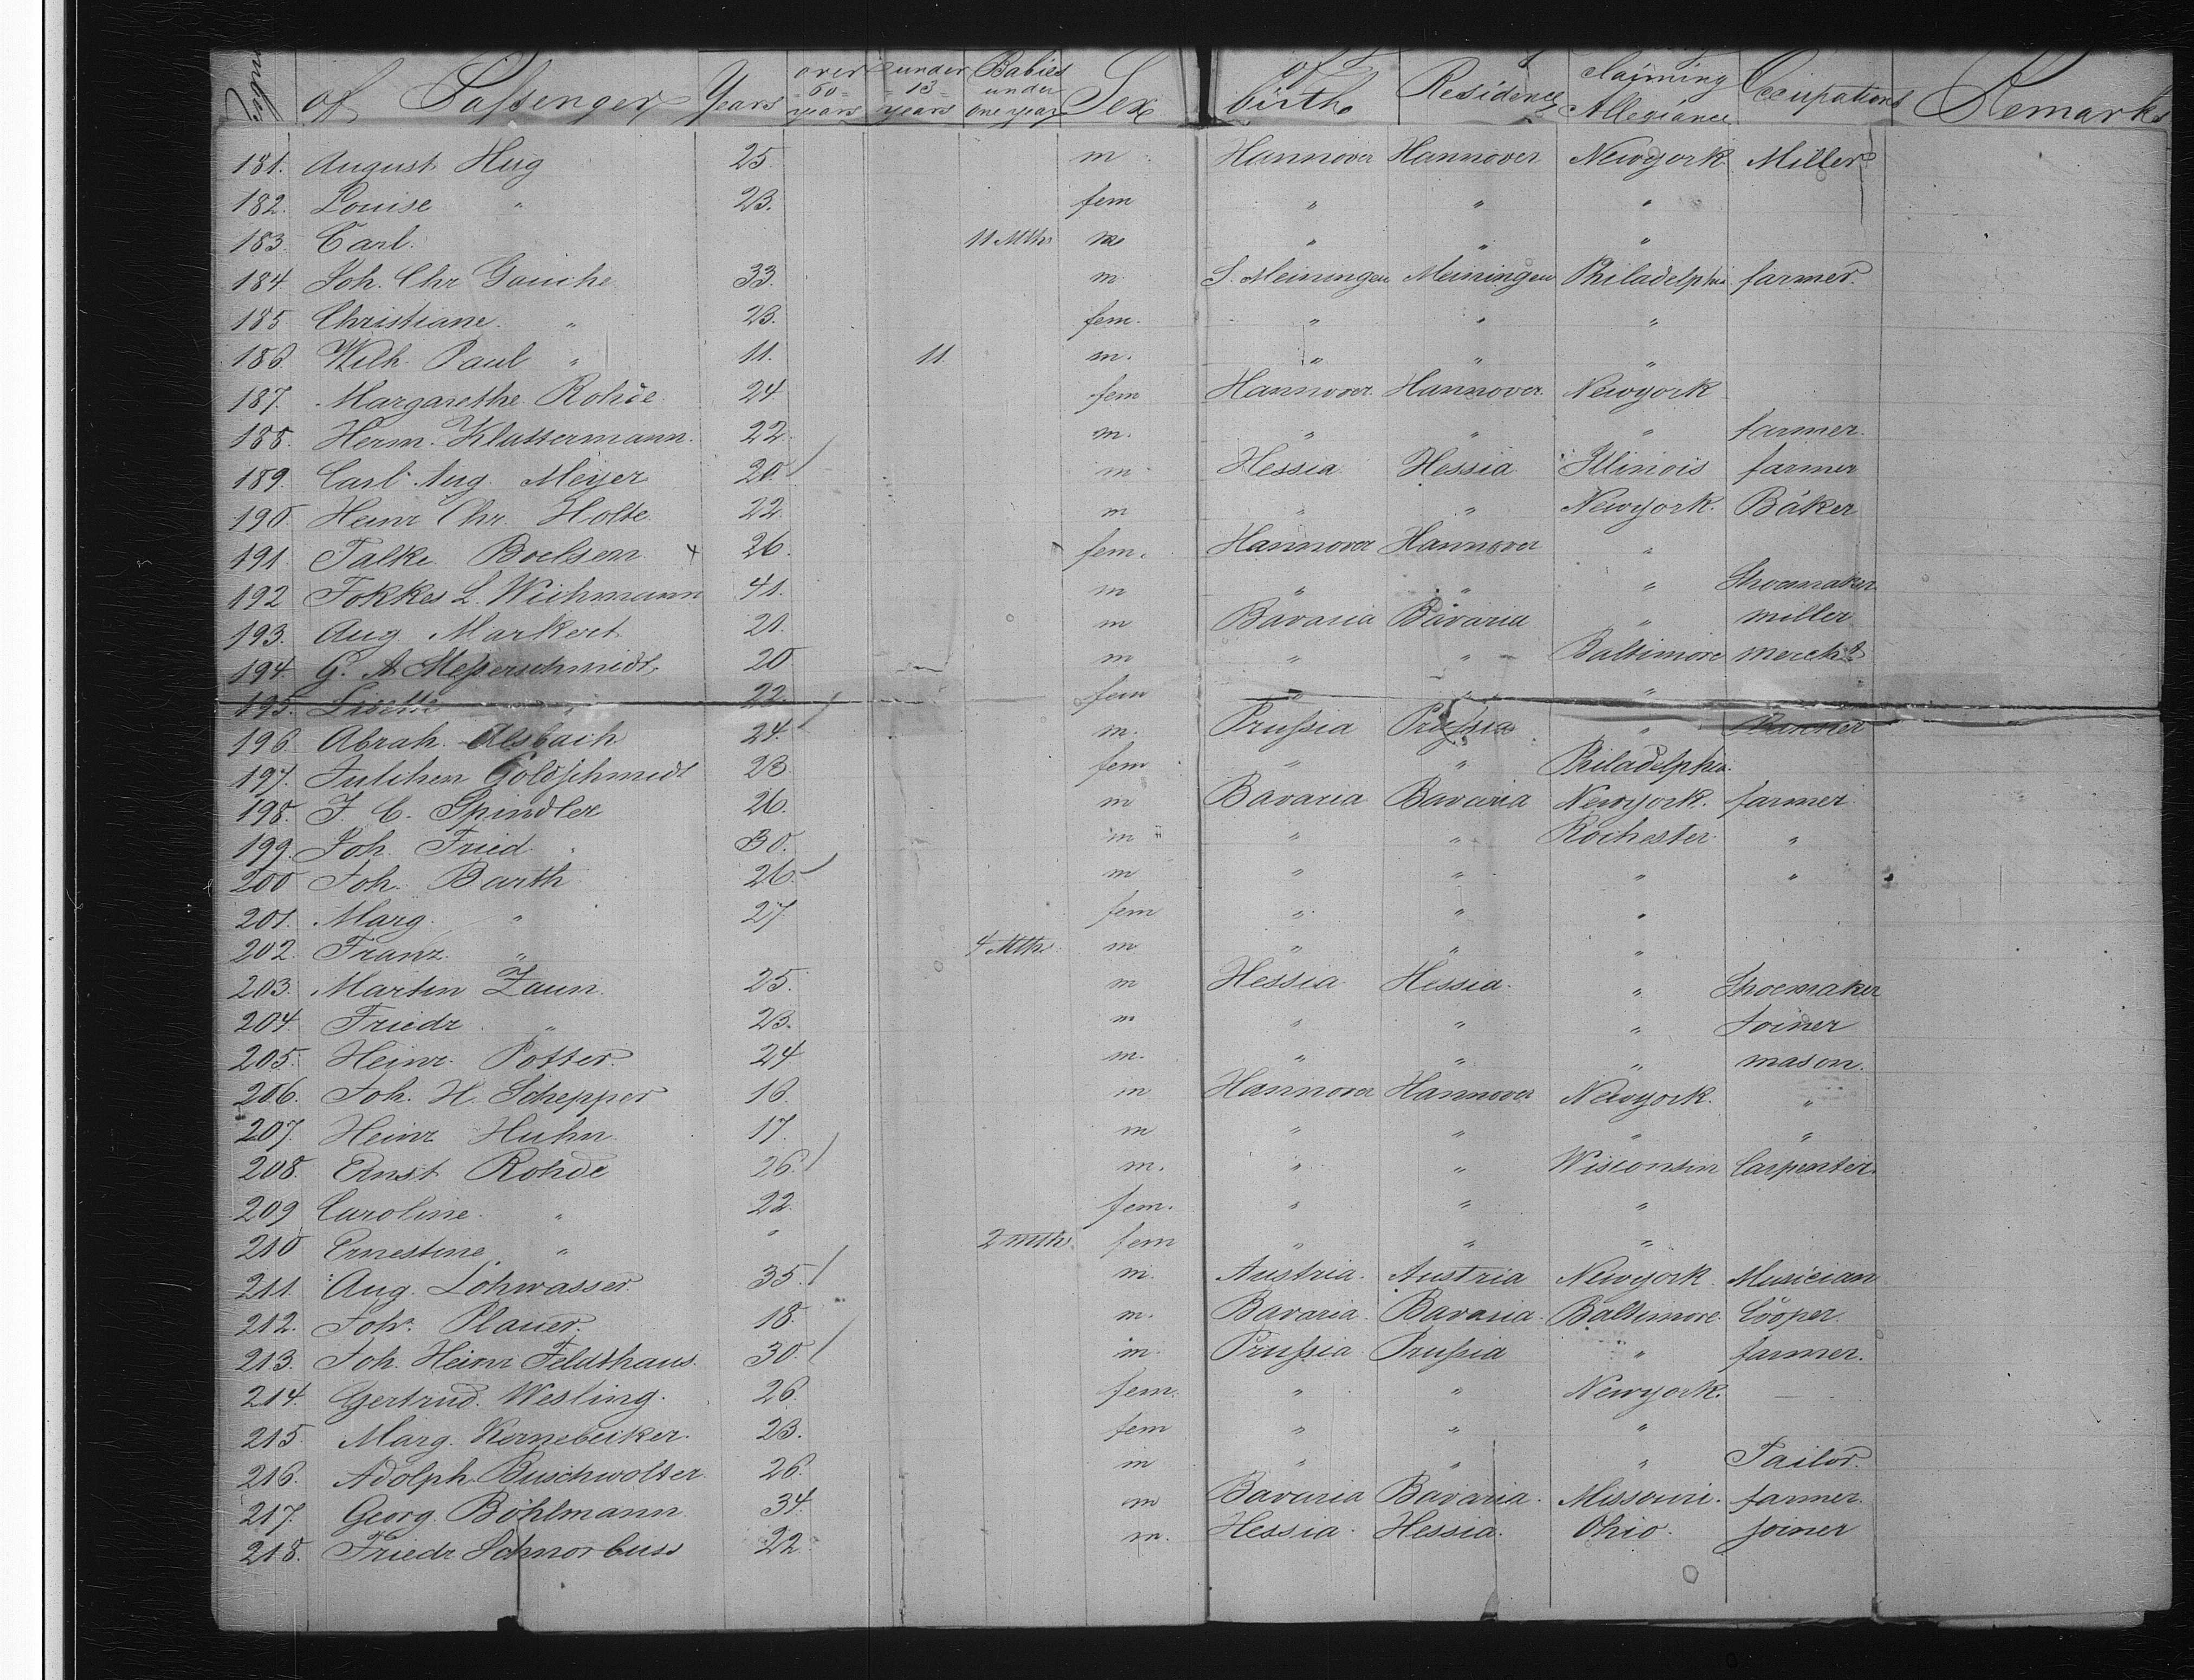 of Passenger Years over 60 years under 13 years Babies under one year Sex of birth Residence claiming Allegiance Occupations Remarks
181. August Hug 25. m Hannover Hannover Newyork Miller
182. Louise " 23. fem " " "
183. Carl. 11 Mths m " " "
184. Joh. Chr 33. m S. Meiningen Meiningen Philadelphia farmer.
185 Christiane. " 23. fem. " " "
186. Wilh. Paul " 11. 11. m. " " "
187. Margarethe Rohde. 24 fem Hannover. Hannover. Newyork
188. Herm. Klattermann. 22. m. " " " farmer.
189. Carl Aug. Meyer 20. m Hessia Hessia Illinois farmer
190. Heinr Chr. Holte. 22. m " " Newyork. Bäker
191. Talke Boelsen x 26. fem. Hannover Hannover "
192 Fokkes L. Wichmann 41. m " " " Shoemaker
193. Aug Markert 21. m Bavaria Bavaria " miller
194. G. A Meſserschmidt 20 m " " Baltimore mercht
195. Lisette " 22. fem " " "
196. Abrah. Alsbach 24. m. Pruſsia Pruſsia "
197. Julchen Goldſchmidt 23. fem " " Philadelphia.
198. J. C. Spindler 26. m Bavaria Bavaria Newyork. farmer
199. Joh. Fried. 30. m " " Rochester. "
200 Joh. Barth 26. m " " " "
201. Marg. " 27 fem " " "
202. Franz. " 4 Mths m " " "
203. Martin Zaun. 25. m Hessia Hessia. " Shoemaker
204. Friedr. " 23. m " " " Joiner
205. Heinr. Potter. 24 m. " " " mason.
206. Joh. H. Schepper 18. m Hannover Hannover Newyork. "
207. Heinr Huhn. 17. m " " " "
208. Ernst Rohde 26. m. " " Wisconsin Carpenter.
209 Caroline. " 22. fem. " " "
210 Ernestine " " 2 mths fem " " "
211. Aug. Lohwasser. 35. m. Austria. Austria Newyork. Musician
212. Joh. Plauer. 18. m. Bavaria. Bavaria. Baltimore. Cooper.
213. Joh. Heinr Feldthaus. 30. m. Pruſsia Pruſsia " farmer.
214. Gertrud. Wesling. 26. fem. " " Newyork.
215. Marg. Kornebecker. 23. fem " " "
216. Adolph Buschwolter. 26. m " " " Tailor.
217. Georg. Böhlmann 34. m Bavaria Bavaria. Missouri. farmer.
218. Friedr Schnorbuss 22. m. Hessia. Hessia. Ohio. joiner